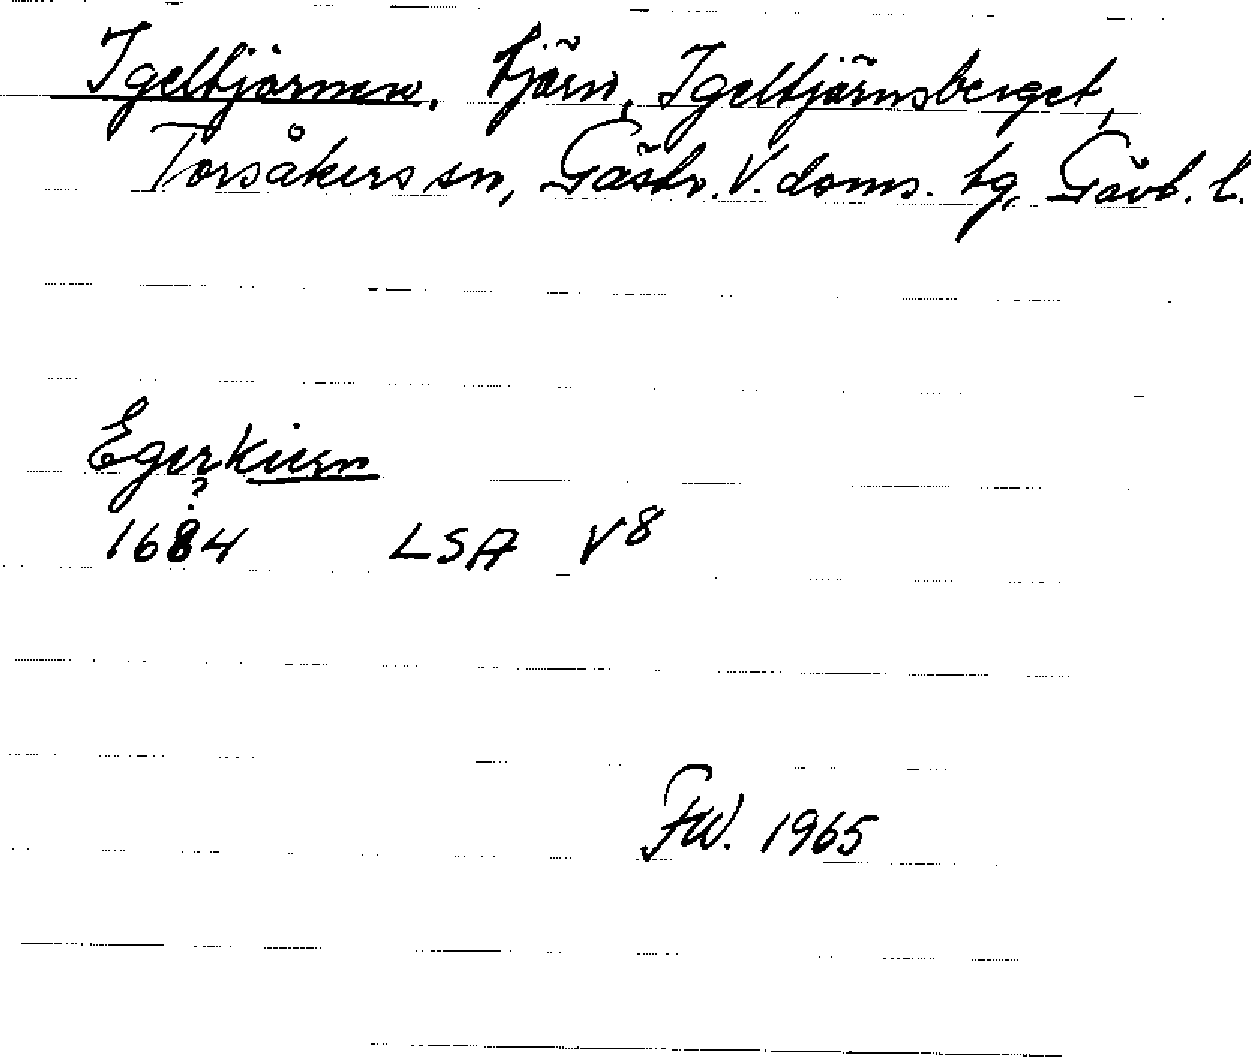 Igeltjärnen. tjärn, Igeltjärnsberget,
Torsåkers sn, Gästr. V. doms. tg, Gävl. l.
Egerkiern
?
1684 LSA V8
FW. 1965